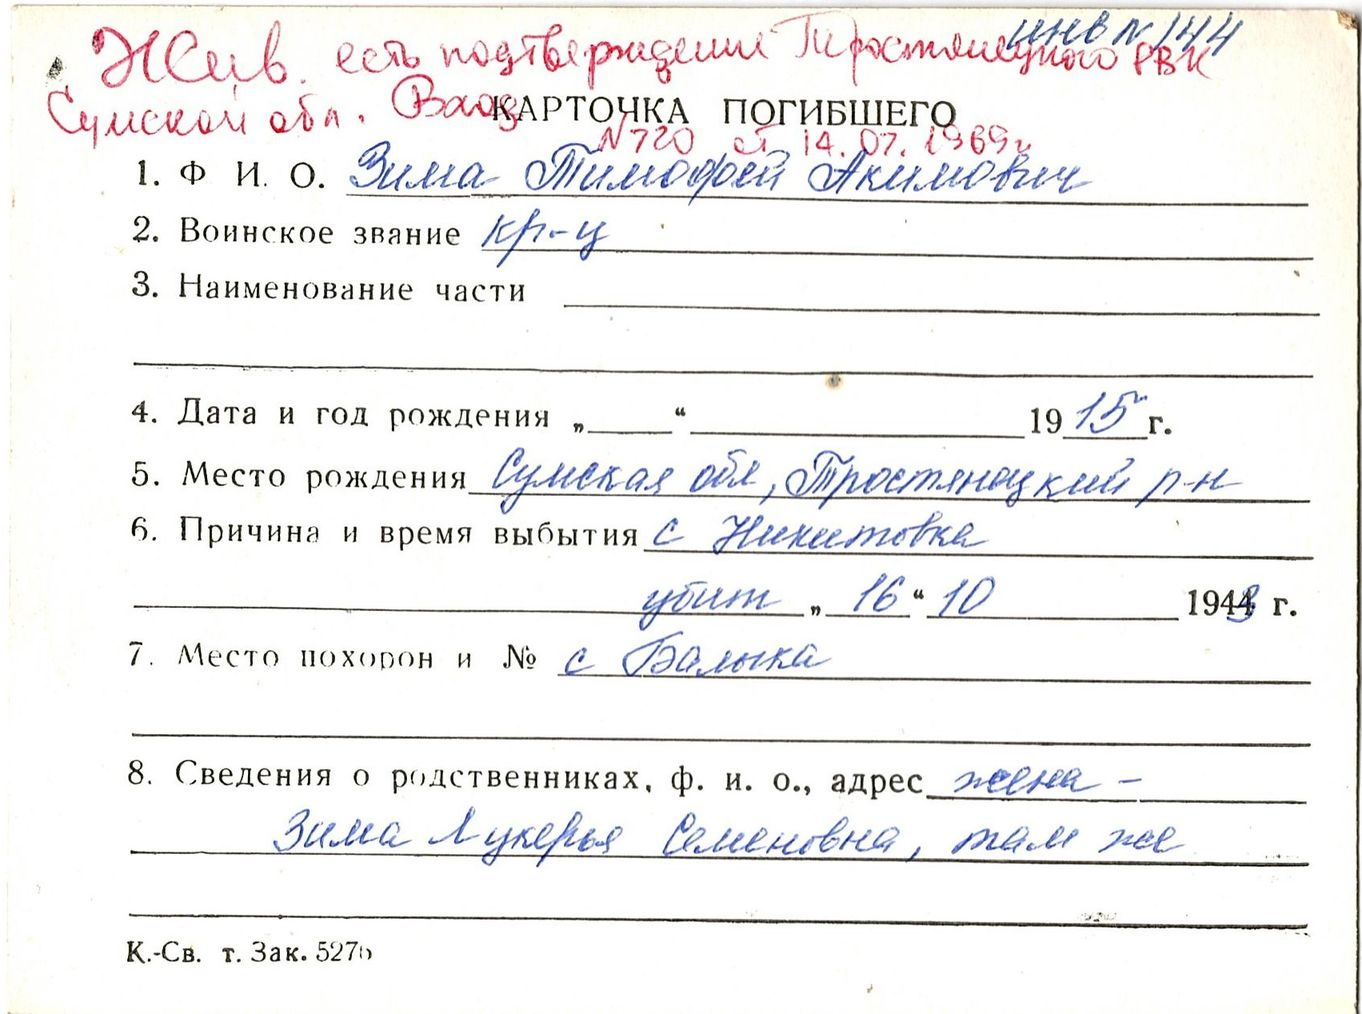 инв N 144
Жив. есть подтверждение Тростянецкого РВК
Сумской обл. Вход
КАРТОЧКА ПОГИБШЕГО
N 720 от 14.07.1969г
1. Ф И. О. Зима Тимофей Акимович
2. Воинское звание кр-ц
3. Наименование части
4. Дата и год рождения „ “ 1915 г.
5. Место рождения Сумская обл, Тростянецкий р-н
6. Причина и время выбытия с Никитовка
убит „ 16 “ 10 1943 г.
7. Место похорон и № с Балыка
8. Сведения о родственниках, ф. и. о., адрес жена -
Зима Лукерья Семеновна, там же
К.-Св. т. Зак. 5276